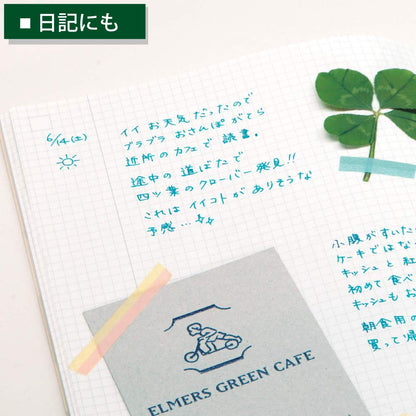 ■ 日記にも
6/14(土)
イイお天気だったので
ブラブラおさんぽがてら
近所のカフェで読書。
途中の道ばたで
四ツ葉のクローバー発見!!
これはイイコトがありそうな
予感…
小腹がすいた
ケーキではな
キッシュと紅
初めて食べ
キッシュもお
朝食用の
買って帰
ELMERS GREEN CAFE